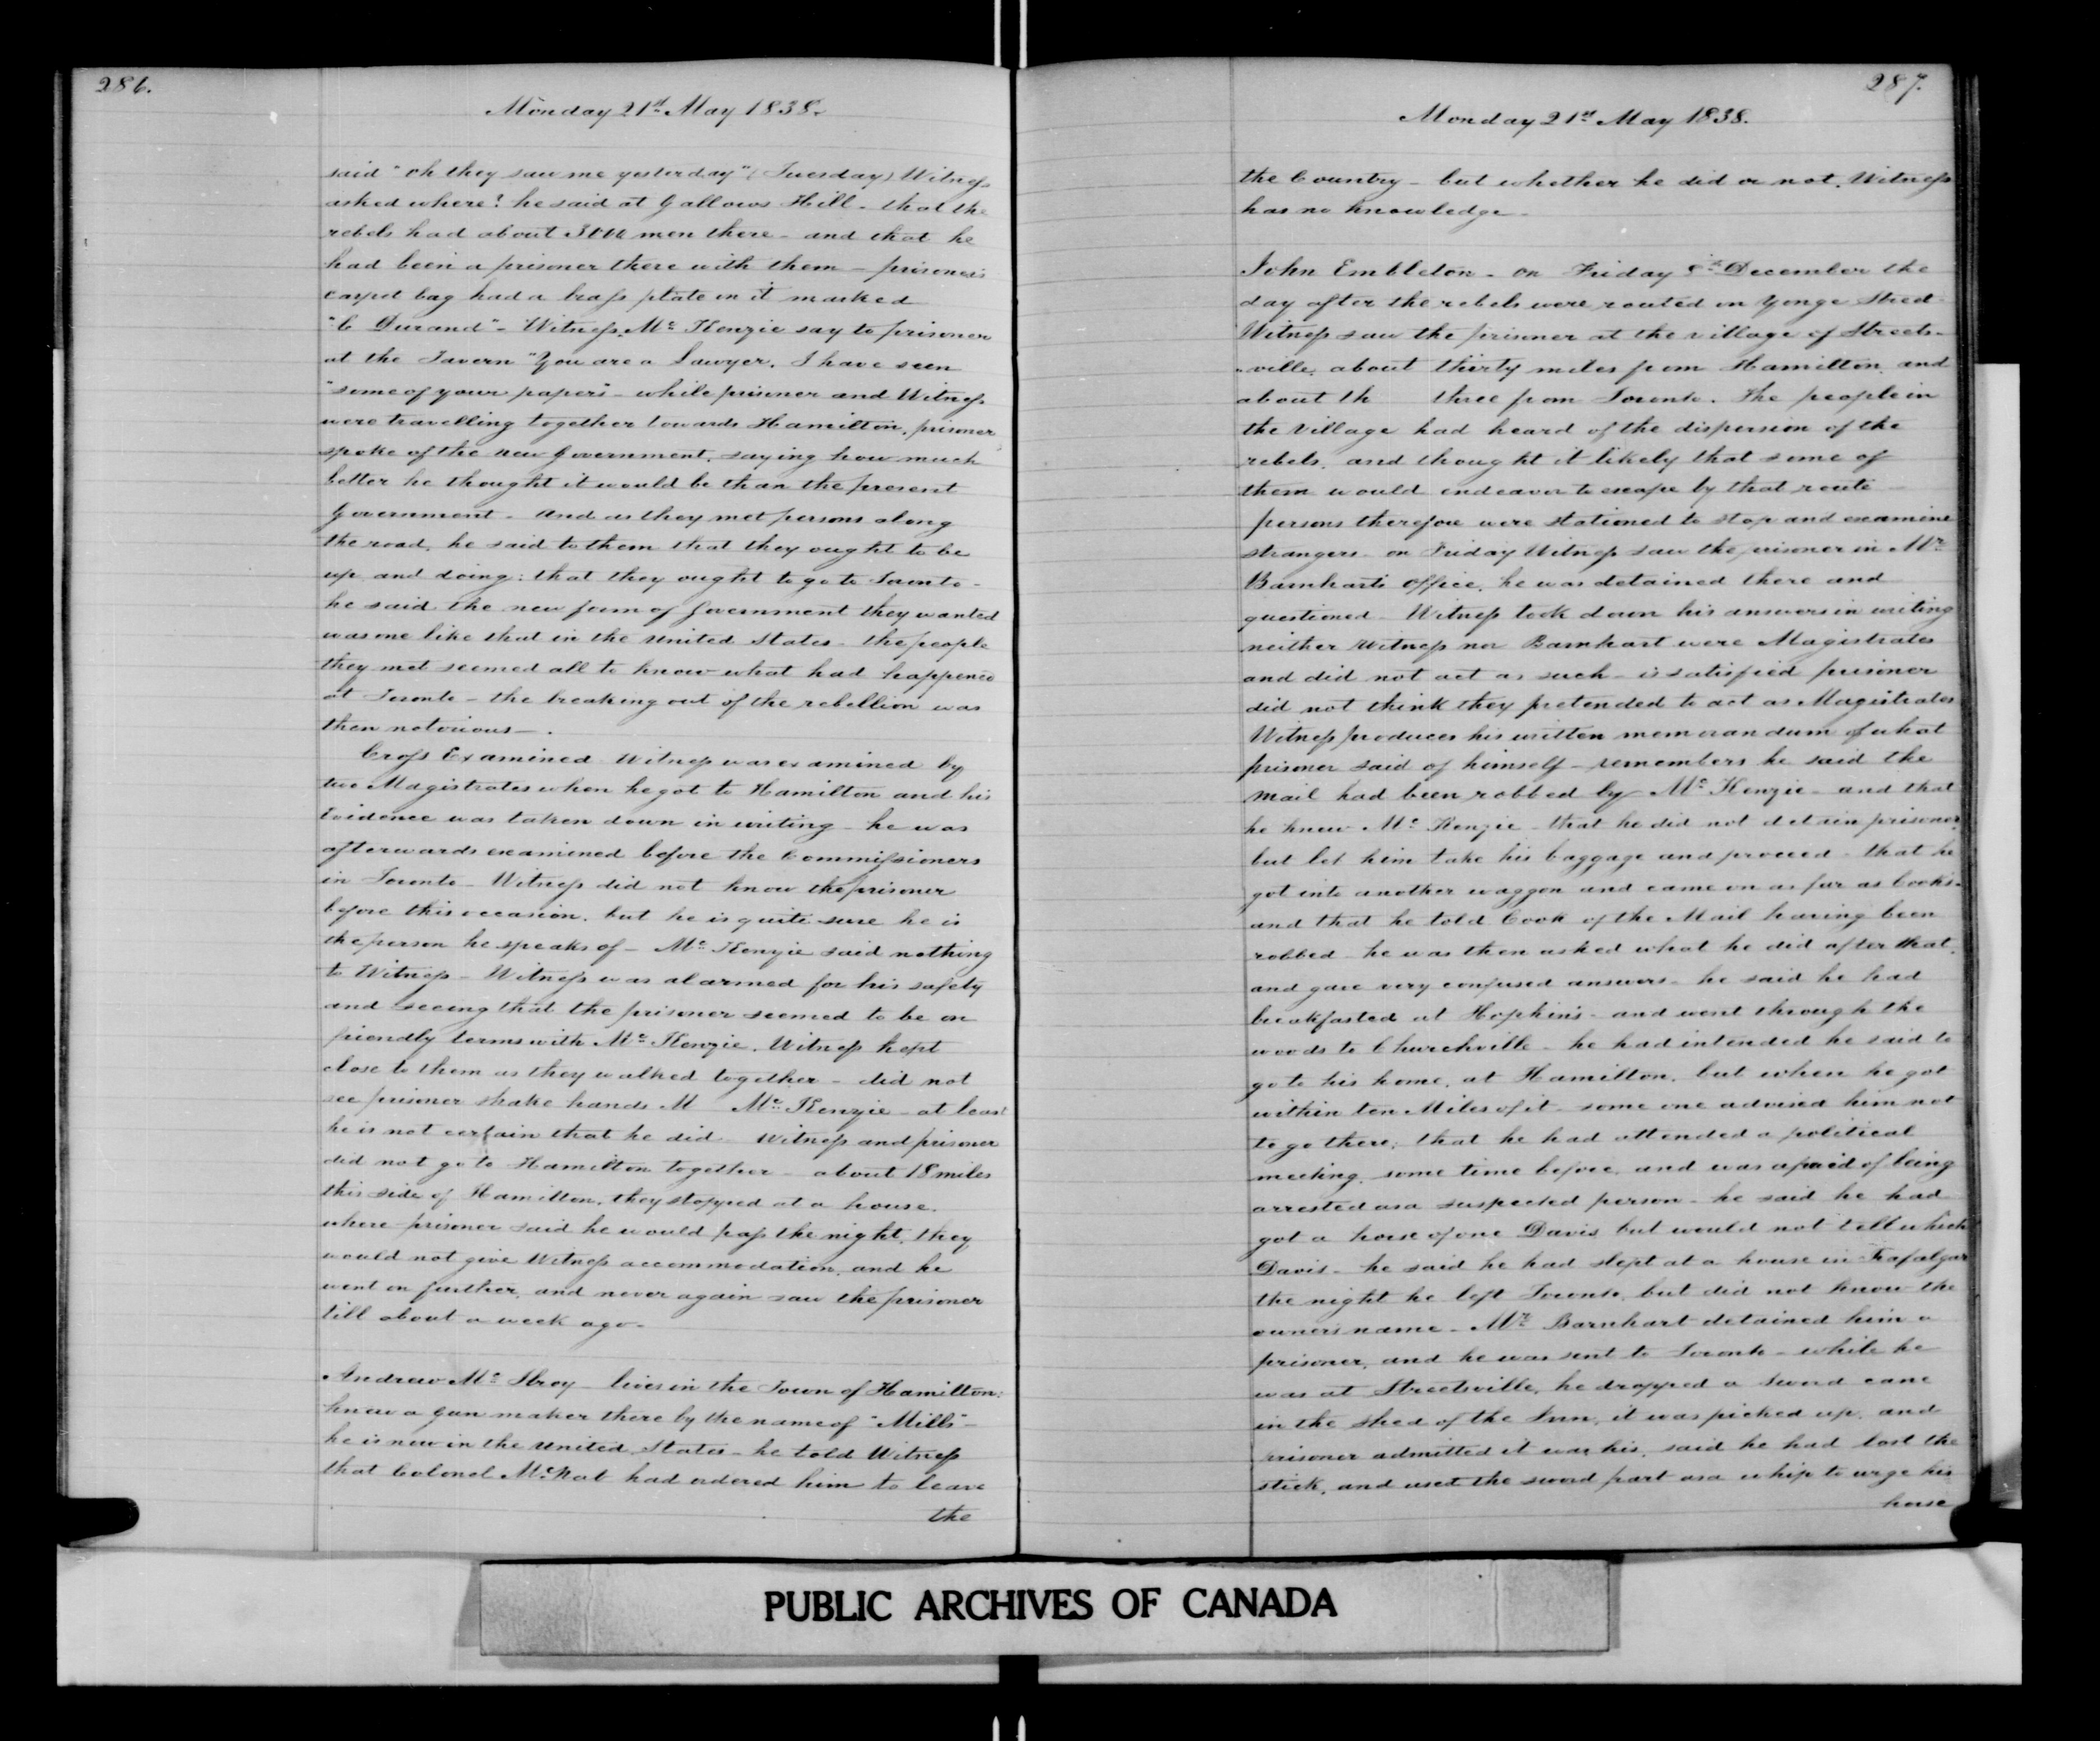 286.
Monday 21st May 1838.
said "oh they saw me yesterday" (Tuesday) Witness
asked where? he said at Gallows Hill - that the
rebels had about men there - and that he
had been a prisoner there with them - prisoner's
carpet bag had a brass plate on it marked
"C Durand" - Witness Mc Kenzie say to prisoner
at the Tavern "You are a Lawyer. I have seen
"some of your papers" - while prisoner and Witness
were travelling together towards Hamilton, prisoner
spoke of the new Government, saying how much
better he thought it would be than the present
Government - and as they met persons along
the road, he said to them that they ought to be
up and doing; that they ought to go to Toronto -
he said the new form of Government they wanted
was one like that in the United States - the people
they met seemed all to know what had happened
at Toronto - the breaking out of the rebellion was
then notorious - .
Cross Examined Witness was examined by
two Magistrates when he got to Hamilton and his
Evidence was taken down in writing - he was
afterwards examined before the Commissioners
in Toronto - Witness did not know the prisoner
before this occasion, but he is quite sure he is
the person he speaks of - Mc Kenzie said nothing
to Witness - Witness was alarmed for his safety
and seeing that the prisoner seemed to be on
friendly terms with Mc Kenzie, Witness kept
close to them as they walked together - did not
see prisoner shake hands M Mc Kenzie - at least
he is not certain that he did - Witness and prisoner
did not go to Hamilton together - about 18 miles
this side of Hamilton, they stopped at a house,
where prisoner said he would pass the night, they
would not give Witness accommodation, and he
went on further, and never again saw the prisoner
till about a week ago -
Andrew Mc Ilroy - lives in the Town of Hamilton:
knew a gun maker there by the name of "Mills" -
he is now in the United States - he told Witness
that Colonel McNab had ordered him to leave
the
287.
Monday 21st May 1838.
the Country - but whether he did or not, Witness
has no knowledge -
John Embleton - on Friday 8th December the
day after the rebels were routed on Yonge Street
Witness saw the prisoner at the village of Streets-
-ville, about thirty miles from Hamilton, and
about th three from Toronto. The people in
the Village had heard of the dispersion of the
rebels, and thought it likely that some of
them would endeavor to escape by that route -
persons therefore were stationed to stop and examine
strangers - on Friday Witness saw the prisoner in Mr
Barnharts office, he was detained there and
questioned - Witness took down his answers in writing
neither Witness nor Barnhart were Magistrates
and did not act as such - is satisfied prisoner
did not think they pretended to act as Magistrates
Witness produces his written memorandum of what
prisoner said of himself - remembers he said the
Mail had been robbed by Mc Kenzie - and that
he knew Mc Kenzie - that he did not detain prisoner,
but let him take his baggage and proceed - that he
got into another waggon and came on as far as Cooks -
and that he told Cook of the Mail having been
robbed - he was then asked what he did after that,
and gave very confused answers - he said he had
breakfasted at Hopkins - and went through the
woods to Churchville - he had intended he said to
go to his home, at Hamilton, but when he got
within ten Miles of it - some one advised him not
to go there; that he had attended a political
meeting, some time before, and was afraid of being
arrested as a suspected person - he said he had
got a horse of one Davis but would not tell which
Davis - he said he had slept at a house in Trafalgar
the night he left Toronto, but did not know the
owners name - Mr Barnhart detained him a
prisoner, and he was sent to Toronto - while he
was at Streetsville, he dropped a sword cane
in the shed of the Inn, it was picked up, and
prisoner admitted it was his, said he had lost the
stick, and used the sword part as a whip to urge his
horse
PUBLIC ARCHIVES OF CANADA